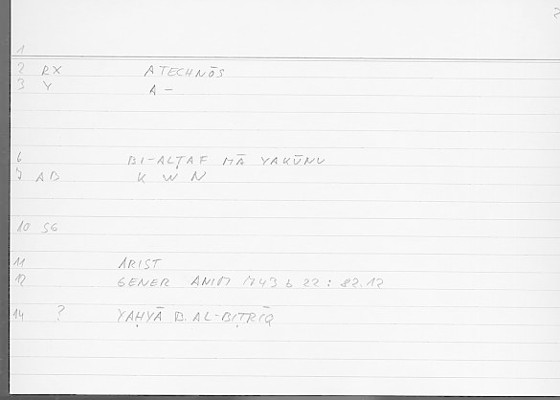 1
2 RX ATECHNŌS
3 Y A -
6 BI-ALṬAF MĀ YAKŪNU
7 AD K W N
10 SG
11 ARIST
12 GENER ANIM 743 b 22 : 82.12
14 ? YAḤYĀ B AL-BIṬRĪQ